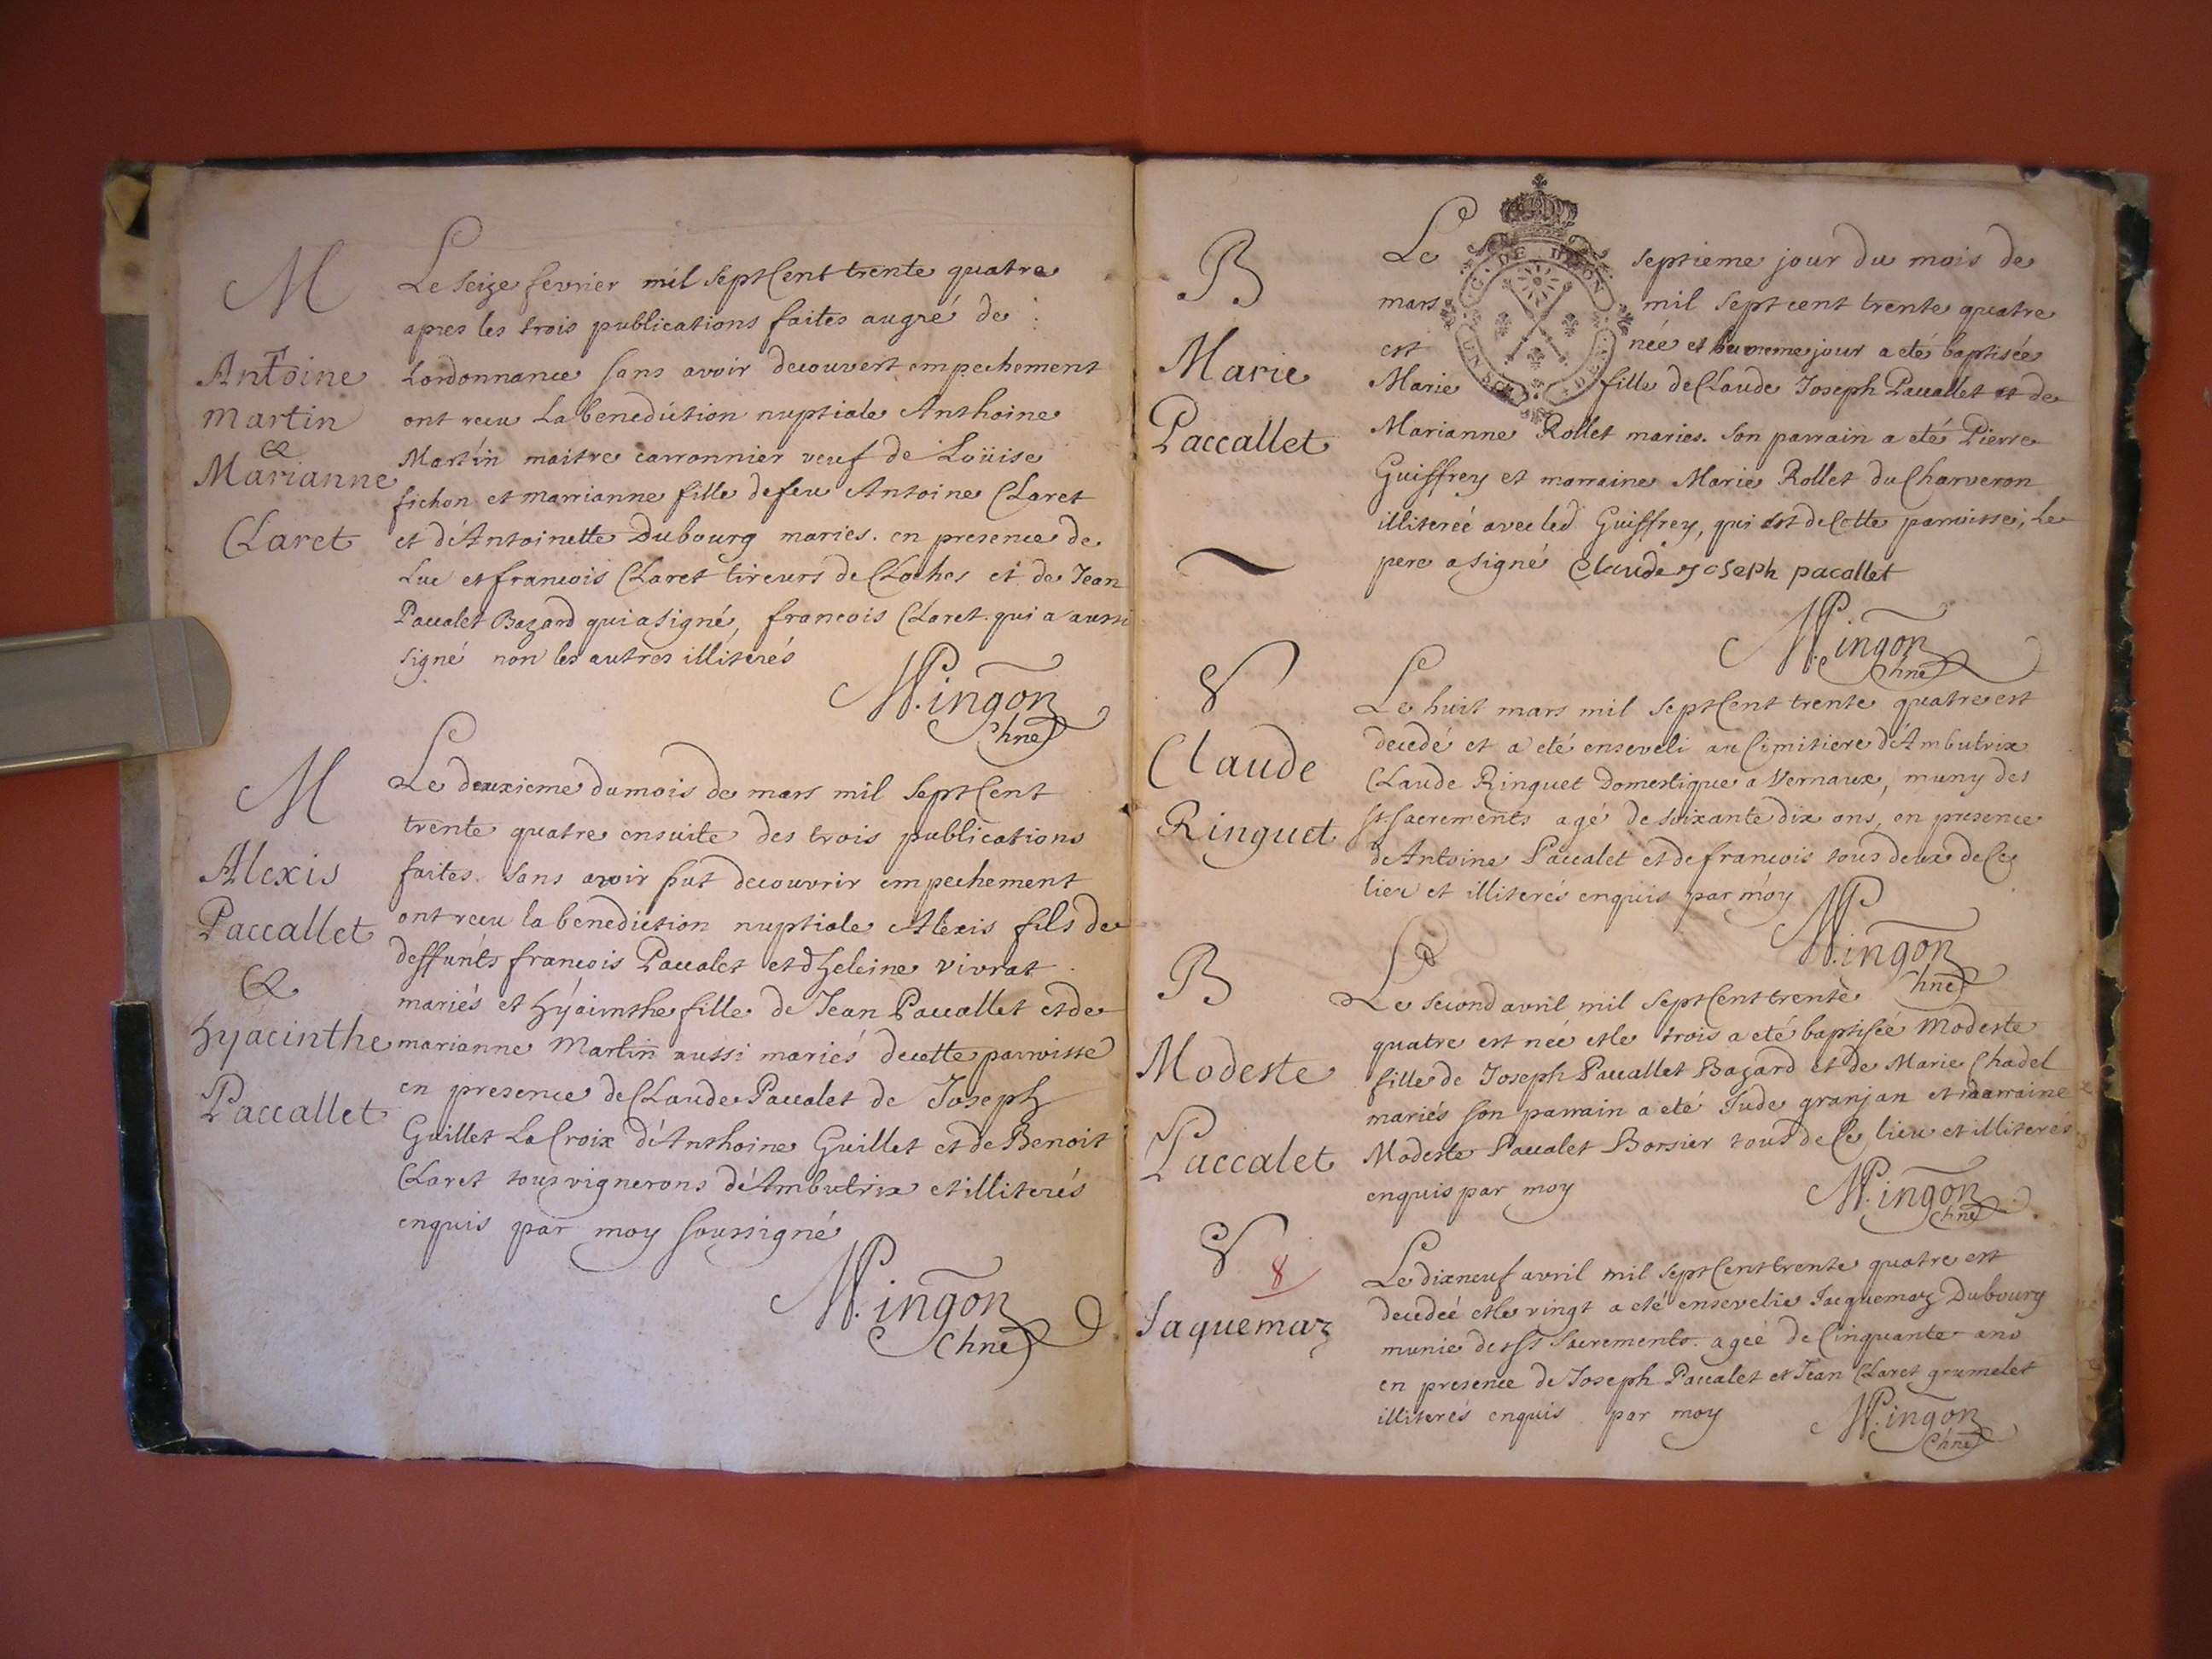 M
Antoine
martin
&
Marianne
Claret
Le seize fevrier mil sept Cent trente quatre
apres les trois publications faites augré de
Lordonnance sans avoir decouvert empechement
ont recu La benediction nuptiale Anthoine
Martin maitre carronnier veuf de Loüise
fichon et marrianne fille defeu Antoine Claret
et d'Antoinette Dubourg mariés. en presence de
Luc et francois Claret tireurs de Cloches et de Jean
Paccalet Bazard qui a signé, francois Claret qui a aussi
signé non les autres illiterés
Mingon
Chne
M
Alexis
Paccallet
&
hyacinthe
Paccallet
Le deuxieme du mois de mars mil sept Cent
trente quatre ensuite des trois publications
faites sans avoir put decouvrir empechement
ont recu la benediction nuptiale Alexis fils de
deffunts francois Paccalet et d'heleine vivrat
mariés et hÿacinthe fille de Jean Paccallet et de
marianne Martin aussi mariés decette parroisse
en presence de Claude Paccalet de Joseph
Guillet La Croix d'Anthoine Guillet et de Benoit
Claret tous vignerons d'Ambutrix et illiterés
enquis par moy soussigné
Mingon
Chne
B
Marie
Paccallet
Le septieme jour du mois de
mars mil sept cent trente quatre
est née et meme jour a eté baptisée
Marie fille de Claude Joseph Paccallet et de
Marianne Rollet mariés. son parrain a eté Pierre
Guiffrey et marraine Marie Rollet du Charveron
illitereé avec led Guiffrey, qui est de Cette parroisse, Le
pere a signé Claude joseph pacallet
Mingon
Chne
Claude
Ringuet
Le huit mars mil sept Cent trente quatre est
decedé et a eté enseveli au Cimitiere d'Ambutrix
Claude Ringuet Domestique a Vernaux, muny des
sts sacrements agé de soixante dix ans, en presence
de Antoine Paccalet et de francois tous deux de Ce
lieu et illiterés enquis par moy
Mingon
Chne
B
Modeste
Paccalet
Le second avril mil sept Cent trente
quatre est née et le trois a eté baptisée Modeste
fille de Joseph Paccallet Bazard et de Marie Chadel
mariés son parrain a eté Jude granjan et marraine
Modeste Paccalet Borsier tous de Ce lieu et illiterés
enquis par moy
Mingon
Chne
8
Jaquemaz
Le dixneuf avril mil sept Cent trente quatre est
decedeé et le vingt a eté ensevelie Jacquemaz Dubourg
munie des sts sacrements. ageé de Cinquante ans
en presence de Joseph Paccalet et Jean Claret groumelet
illiterés enquis par moy
Mingon
Chne